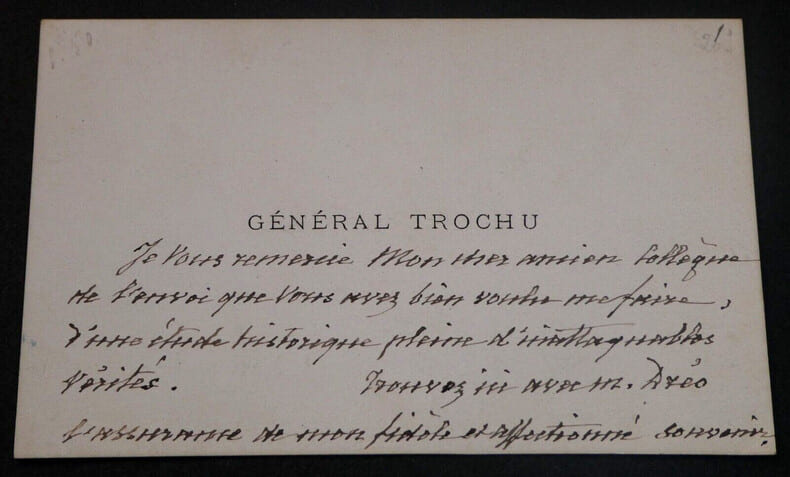 GÉNÉRAL TROCHU
Je vous remercie Mon cher ancien Collègue
de l'envoi que vous avez bien voulu me faire,
d'une étude historique pleine d'inattaquables
vérités. Trouvez ici avec m. Dréo
l'assurance de mon fidèle et affectionné souvenir.